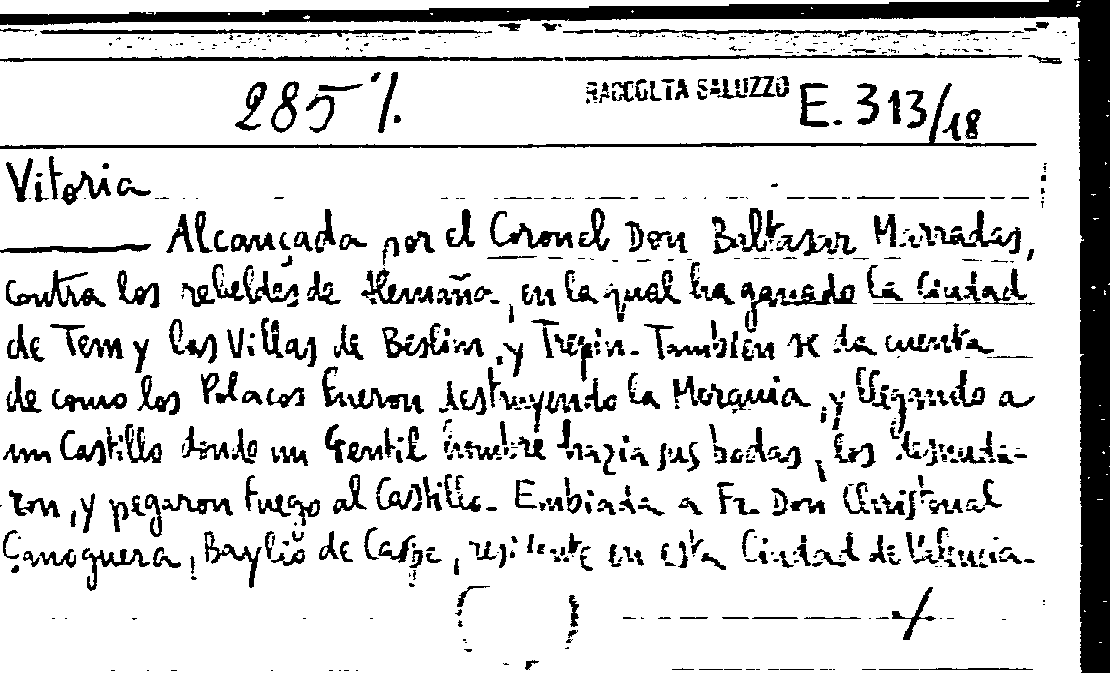 285 /.
RACCOLTA SALUZZO E. 313/18
Vitoria
Alcançada por el Coronel Don Baltasar Marradas,
contra los rebeldes de Alemaña, en la qual ha ganado la Ciudad
de Tem y las Villas de Beslim, y Trepin. Tambien se da cuenta
de como los Polacos fueron destruyendo la Morauia, y llegando a
un Castillo donde un Gentil hombre hazia sus bodas, los desnuda-
ron, y pegaron fuego al Castillo. Embiada a Fr. Don Christoual
Çanoguera, Baylio de Caspe, residente en esta Ciudad de Valencia.